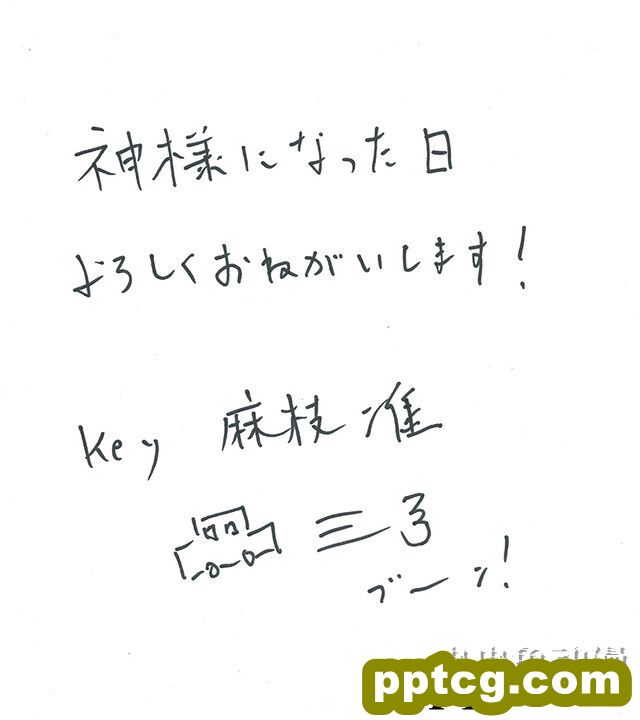 神様になった日
よろしくおねがいします!
Key 麻枝准
ブーン!
pptcg.com